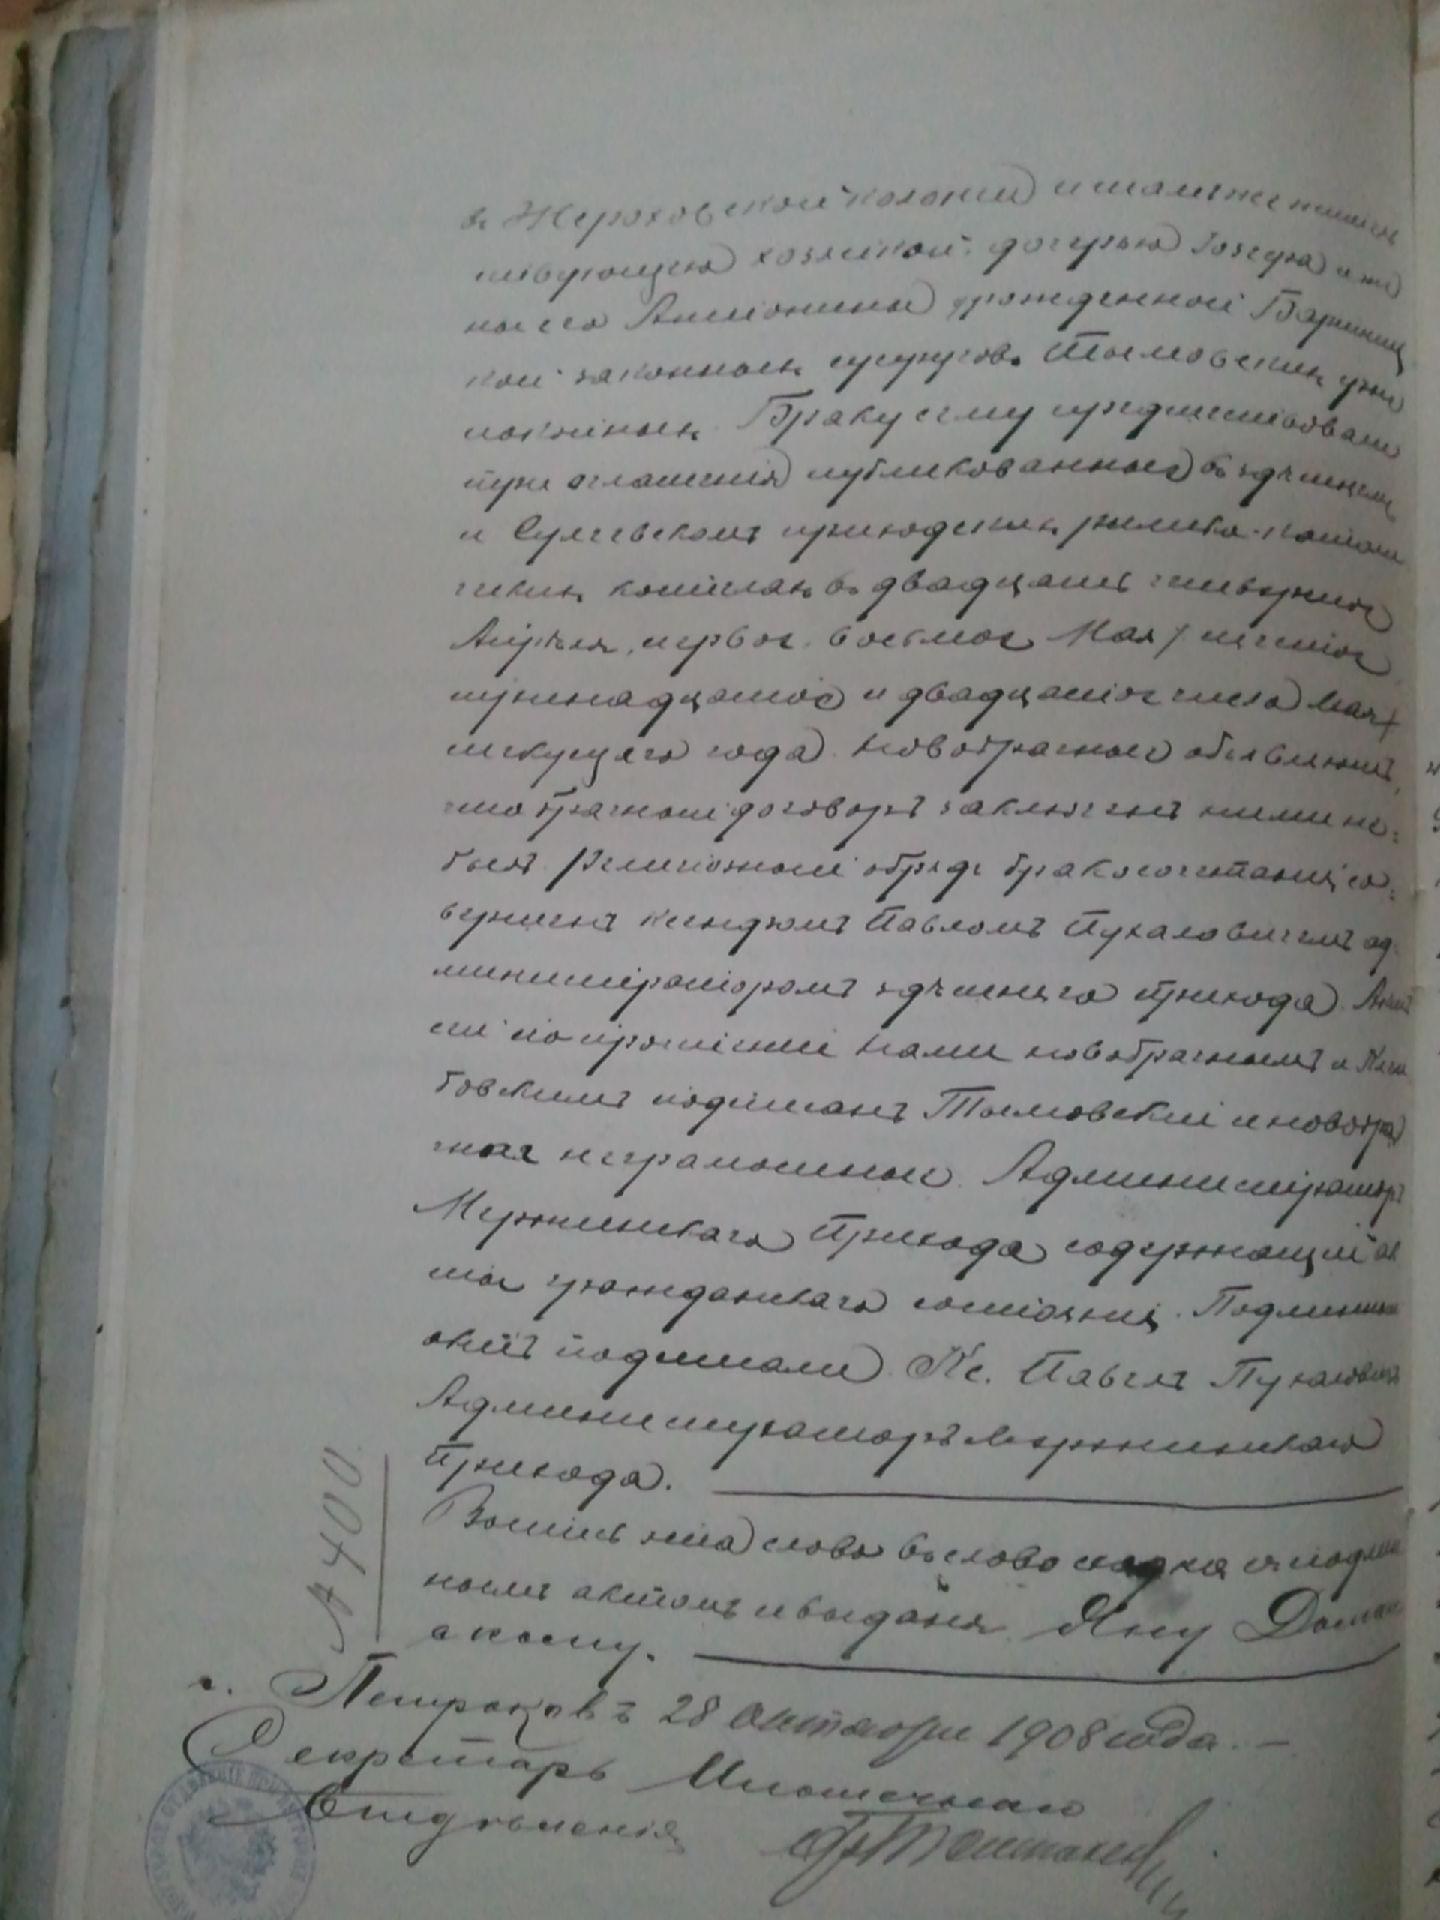 въ Жероховской колоніи и тамъ же житель
ствующею хозяйкой, дочерью Іозефа и же
ны его Антонины урожденной Баржинц
кой законныхъ супруговъ Тымовскихъ уже
покойныхъ. Браку сему предшествовали
три оглашенія публикованныя въ здѣшнемъ
и Сулеевскомъ приходскихъ римско-католи
ческихъ костелахъ въ двадцать четвертое
Апрѣля, первое, восьмое Мая / шестое
тринадцатое и двадцатое числа Мая /
текущаго года. Новобрачные объявляютъ,
что брачный договоръ заключенъ ними не-
былъ. Религіозный обрядъ бракосочетанія со-
вершенъ ксендзомъ Павломъ Пухаловичемъ ад-
министраторомъ здѣшняго прихода. Актъ
сей по прочтеніи нами новобрачнымъ и
бовскимъ подписанъ Тымовскій и новобра
чная неграмотные. Администраторъ
Мержинскаго Прихода содержащій ак
ты гражданскаго состоянія. Подлинный
актъ подписали: Кс. Павелъ Пухаловичъ
Администраторъ Мержинскаго
Прихода.
Выпись эта слово въ слово сходна съ подлин
нымъ актомъ и выдана Яну Доман
скому.
№ 400
г. Петроковъ 28 Октября 1908 года. —
Секретарь Ипотечнаго
Отдѣленія